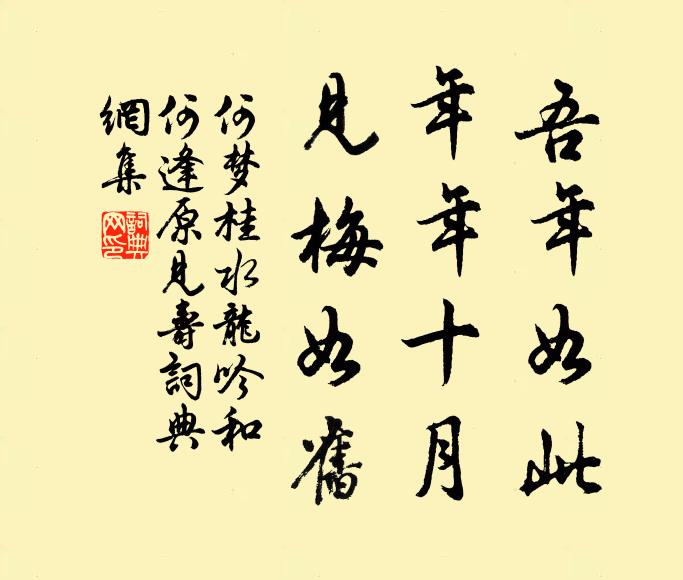 吾年如此
年年十月
見梅如舊
何梦桂水龍吟和
何逢原見壽詞典
網集
詞典网印